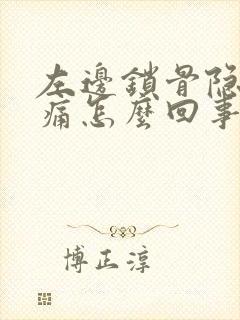 左邊鎖骨隐
痛怎麼回事
博正淳